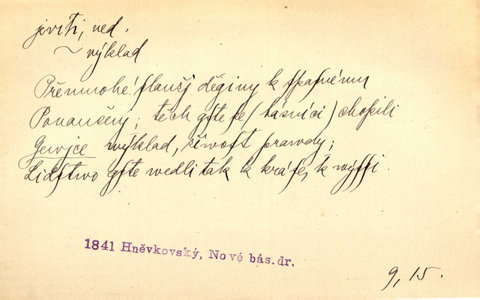 jeviti, ned.
~ výklad
Přemnohé slaussj děginy k spasnému
Ponaučeny; těch gste se (básníci) chopili
Gewjce výklad, žiwost prawdy;
Lidstwo gste wedli tak k kráse, k wýssi.
1841 Hněvkovský, Nové bás. dr.
9, 15.